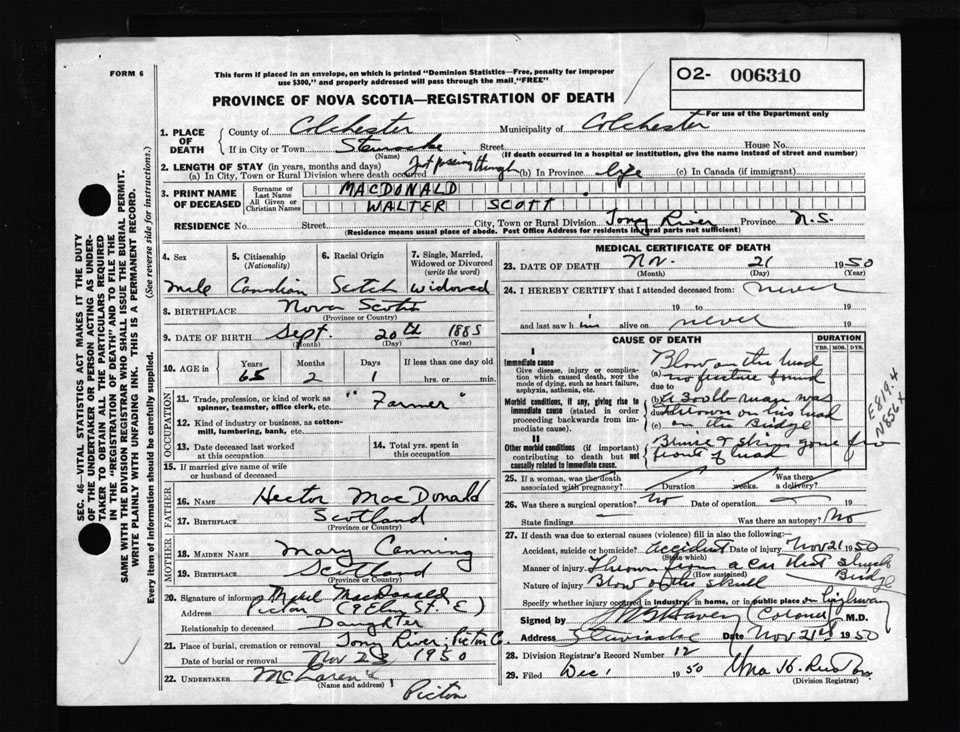 FORM 6
This form if placed in an envelope, on which is printed "Dominion Statistics—Free, penalty for improper
use $300," and properly addressed will pass through the mail "FREE"
O2- 006310
For use of the Department only
PROVINCE OF NOVA SCOTIA—REGISTRATION OF DEATH
1. PLACE OF DEATH
County of Colchester Municipality of Colchester
If in City or Town Street House No.
(Name) (If death occurred in a hospital or institution, give the name instead of street and number)
2. LENGTH OF STAY (in years, months and days)
(a) In City, Town or Rural Division where death occurred Just passing through (b) In Province life (c) In Canada (if immigrant)
3. PRINT NAME OF DECEASED
Surname or Last Name MACDONALD
All Given or Christian Names WALTER SCOTT
RESIDENCE No. Street City, Town or Rural Division Toney River Province N.S.
(Residence means usual place of abode. Post Office Address for residents in rural parts not sufficient)
4. Sex
5. Citizenship (Nationality)
6. Racial Origin
7. Single, Married, Widowed or Divorced (write the word)
Male Canadian Scotch Widowed
8. BIRTHPLACE Nova Scotia
(Province or Country)
9. DATE OF BIRTH Sept. 20th 1885
(Month) (Day) (Year)
10. AGE in Years Months Days If less than one day old
65 2 1 hrs. or min.
OCCUPATION
11. Trade, profession, or kind of work as spinner, teamster, office clerk, etc. "Farmer"
12. Kind of industry or business, as cotton-mill, lumbering, bank, etc.
13. Date deceased last worked at this occupation
14. Total yrs. spent in this occupation
15. If married give name of wife or husband of deceased
FATHER
16. NAME Hector MacDonald
17. BIRTHPLACE Scotland
(Province or Country)
MOTHER
18. MAIDEN NAME Mary Canning
19. BIRTHPLACE Scotland
(Province or Country)
20. Signature of informant MacDonald
Address Picton (9 Elm St. E)
Relationship to deceased Daughter
21. Place of burial, cremation or removal Toney River, Picton Co.
Date of burial or removal Nov 23 1950
22. UNDERTAKER McLaren's
(Name and address) Picton
MEDICAL CERTIFICATE OF DEATH
23. DATE OF DEATH Nov. 21 1950
(Month) (Day) (Year)
24. I HEREBY CERTIFY that I attended deceased from: never
19 to 19
and last saw him alive on never 19
CAUSE OF DEATH
DURATION
YRS. MOS. DYS.
I
Immediate cause
Give disease, injury or complication which caused death, NOT the mode of dying, such as heart failure, asphyxia, asthenia, etc.
Morbid conditions, if any, giving rise to immediate cause (stated in order proceeding backwards from immediate cause).
II
Other morbid conditions (if important) contributing to death but not causally related to immediate cause.
Blow on the head
(a) no fracture found
due to
(b) A 300lb man was
due to thrown on his head
(c) on the Bridge
Bruise & skin gone from
front of head
E819.4
N856x
25. If a woman, was the death associated with pregnancy? Duration weeks. Was there a delivery?
26. Was there a surgical operation? No Date of operation 19
State findings Was there an autopsy? No
27. If death was due to external causes (violence) fill in also the following:
Accident, suicide or homicide? Accident Date of injury Nov 21 1950
(State which)
Manner of injury Thrown from a car that struck Bridge
(How sustained)
Nature of injury Blow on the skull
Specify whether injury occurred in industry, in home, or in public place on highway
Signed by (Coroner) M.D.
Address Date Nov 21st 1950
28. Division Registrar's Record Number 12
29. Filed Dec 1 1950
(Division Registrar)
SEC. 46—VITAL STATISTICS ACT MAKES IT THE DUTY
OF THE UNDERTAKER OR PERSON ACTING AS UNDERTAKER
TO OBTAIN ALL THE PARTICULARS REQUIRED
IN THE "REGISTRATION OF DEATH" AND TO FILE THE
SAME WITH THE DIVISION REGISTRAR WHO SHALL ISSUE THE BURIAL PERMIT.
WRITE PLAINLY WITH UNFADING INK. THIS IS A PERMANENT RECORD.
Every item of information should be carefully supplied. (See reverse side for instructions.)